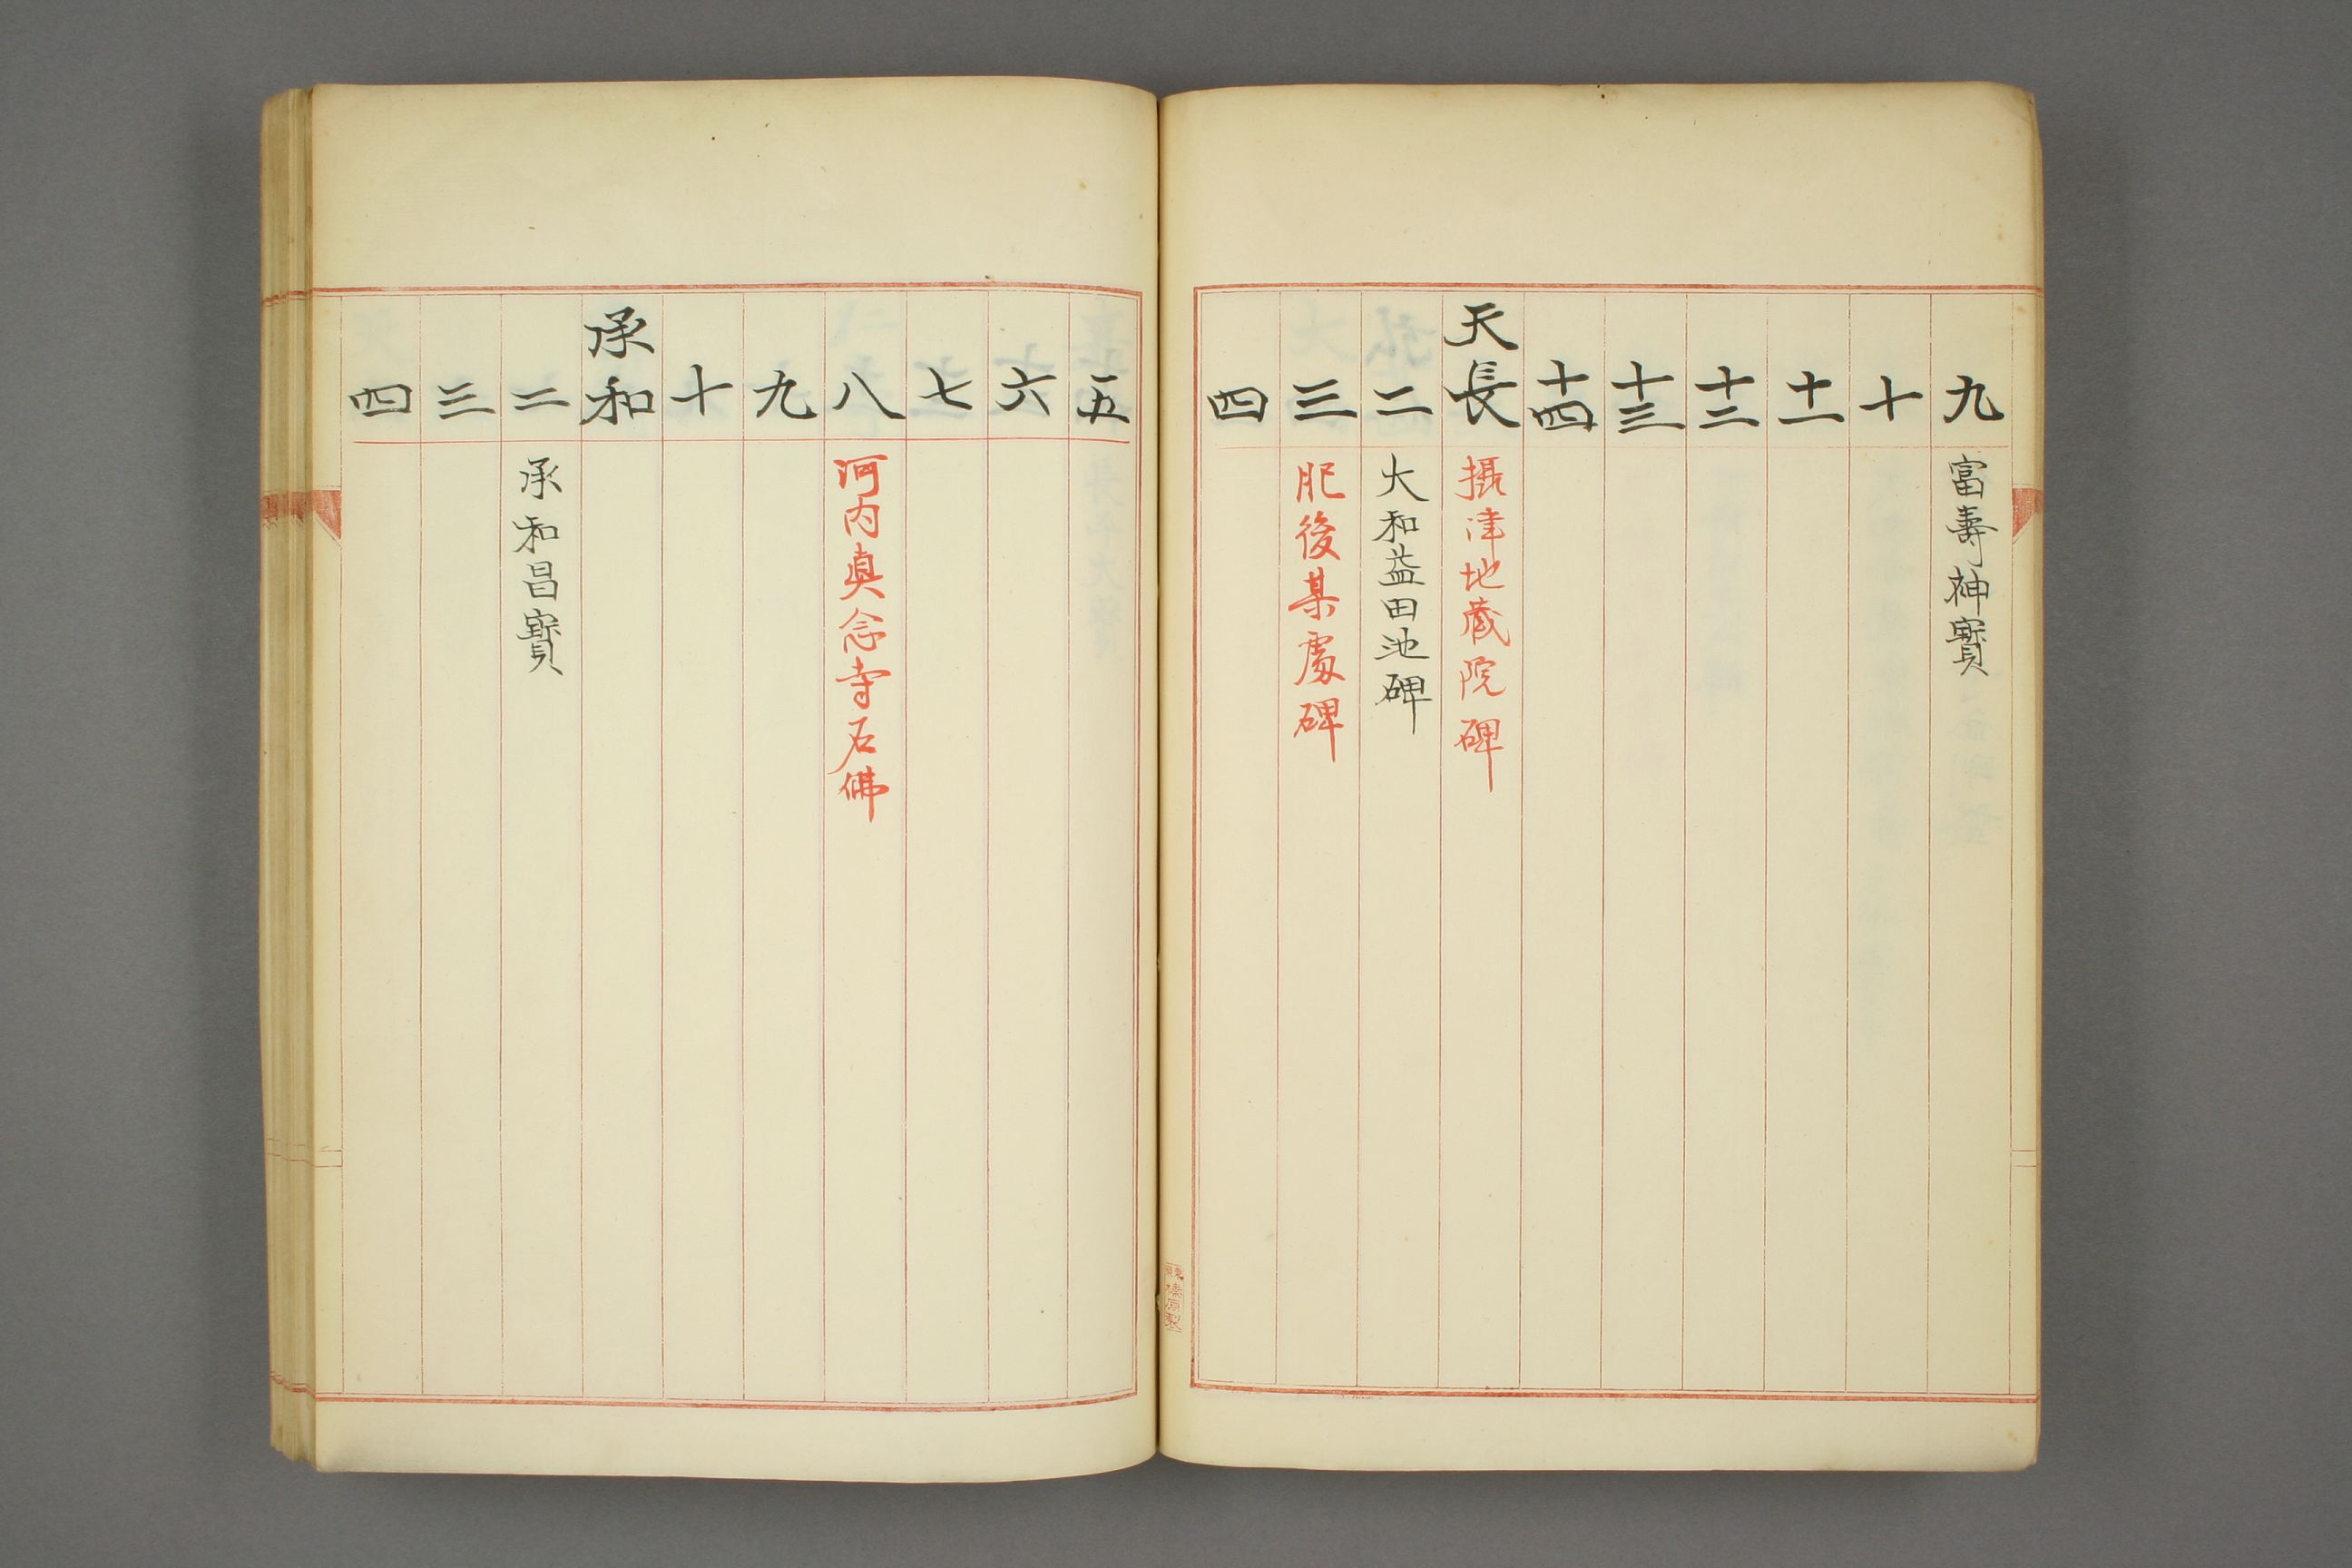 九 富壽神寳
十
十一
十二
十三
十四
天長 攝津地蔵院碑
二 大和益田池碑
三 肥後某處碑
四
五
六
七
八 河内眞念寺石佛
九
十
承和
二 承和昌寳
三
四
榛原製